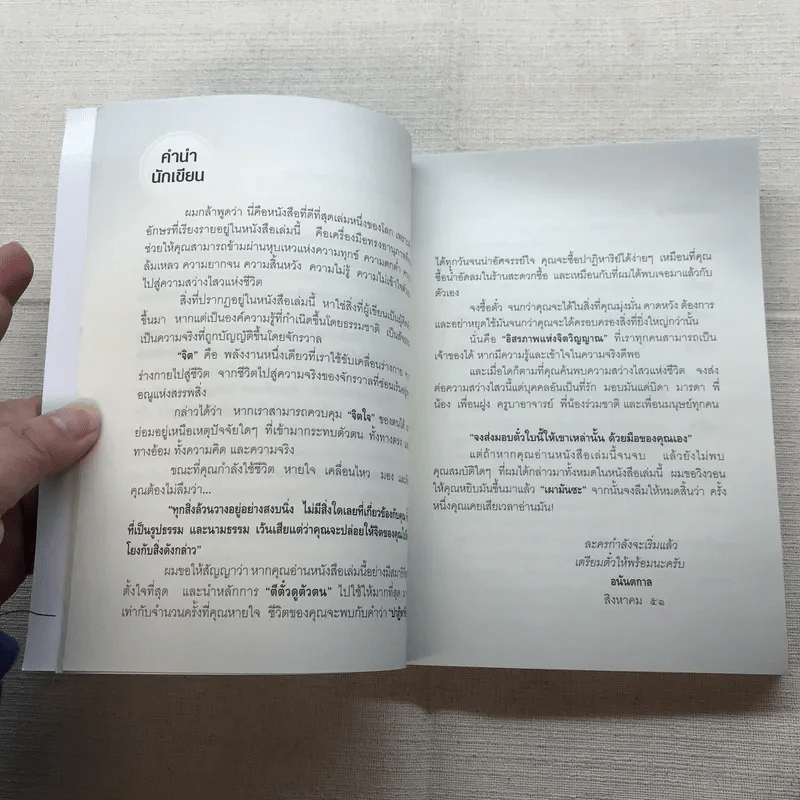 คำนำ
นักเขียน
ผมกล้าพูดว่า นี่คือหนังสือที่ดีที่สุดเล่มหนึ่งของโลก เพราะ
อักษรที่เรียงรายอยู่ในหนังสือเล่มนี้ คือเครื่องมือทรงอานุภาพ
ช่วยให้คุณสามารถข้ามผ่านหุบเหวแห่งความทุกข์ ความตกต่ำ
ล้มเหลว ความยากจน ความสิ้นหวัง ความไม่รู้ ความไม่เข้าใจ
ไปสู่ความสว่างไสวแห่งชีวิต
สิ่งที่ปรากฏอยู่ในหนังสือเล่มนี้ หาใช่สิ่งที่ผู้เขียนเป็น
ขึ้นมา หากแต่เป็นองค์ความรู้ที่กำเนิดขึ้นโดยธรรมชาติ
เป็นความจริงที่ถูกบัญญัติขึ้นโดยจักรวาล
“จิต” คือ พลังงานหนึ่งเดียวที่เราใช้ขับเคลื่อนร่างกาย
ร่างกายไปสู่ชีวิต จากชีวิตไปสู่ความจริงของจักรวาลที่ซ่อนเร้น
อณูแห่งสรรพสิ่ง
กล่าวได้ว่า หากเราสามารถควบคุม “จิตใจ” ของตนได้
ย่อมอยู่เหนือเหตุปัจจัยใดๆ ที่เข้ามากระทบตัวตน ทั้งทางตรง
ทางอ้อม ทั้งความคิด และความจริง
ขณะที่คุณกำลังใช้ชีวิต หายใจ เคลื่อนไหว มอง
คุณต้องไม่ลืมว่า...
“ทุกสิ่งล้วนวางอยู่อย่างสงบนิ่ง ไม่มีสิ่งใดเลยที่เกี่ยวข้องกับคุณ
ที่เป็นรูปธรรม และนามธรรม เว้นเสียแต่ว่าคุณจะปล่อยให้จิตของคุณ
โยงกับสิ่งดังกล่าว”
ผมขอให้สัญญาว่า หากคุณอ่านหนังสือเล่มนี้อย่างมีสมาธิ
ตั้งใจที่สุด และนำหลักการ “ตีตั๋วดูตัวตน” ไปใช้ให้มากที่สุด
เท่ากับจำนวนครั้งที่คุณหายใจ ชีวิตของคุณจะพบกับคำว่า
ได้ทุกวันจนน่าอัศจรรย์ใจ คุณจะซื้อปาฏิหาริย์ได้ง่ายๆ เหมือนที่คุณ
ซื้อน้ำอัดลมในร้านสะดวกซื้อ และเหมือนกับที่ผมได้พบเจอมาแล้วกับ
ตัวเอง
จงซื้อตั๋ว จนกว่าคุณจะได้ในสิ่งที่คุณมุ่งมั่น คาดหวัง ต้องการ
และอย่าหยุดใช้มันจนกว่าคุณจะได้ครอบครองสิ่งที่ยิ่งใหญ่กว่านั้น
นั่นคือ “อิสรภาพแห่งจิตวิญญาณ” ที่เราทุกคนสามารถเป็น
เจ้าของได้ หากมีความรู้และเข้าใจในความจริงดีพอ
และเมื่อใดก็ตามที่คุณค้นพบความสว่างไสวแห่งชีวิต จงส่ง
ต่อความสว่างไสวนี้แด่บุคคลอันเป็นที่รัก มอบมันแด่บิดา มารดา พี่
น้อง เพื่อนฝูง ครูบาอาจารย์ พี่น้องร่วมชาติ และเพื่อนมนุษย์ทุกคน
“จงส่งมอบตั๋วใบนี้ให้เขาเหล่านั้น ด้วยมือของคุณเอง”
แต่ถ้าหากคุณอ่านหนังสือเล่มนี้จนจบ แล้วยังไม่พบ
คุณสมบัติใดๆ ที่ผมได้กล่าวมาทั้งหมดในหนังสือเล่มนี้ ผมขอวิงวอน
ให้คุณหยิบมันขึ้นมาแล้ว “เผามันซะ” จากนั้นจงลืมให้หมดสิ้นว่า ครั้ง
หนึ่งคุณเคยเสียเวลาอ่านมัน!
ละครกำลังจะเริ่มแล้ว
เตรียมตั๋วให้พร้อมนะครับ
อนันตกาล
สิงหาคม ๕๑